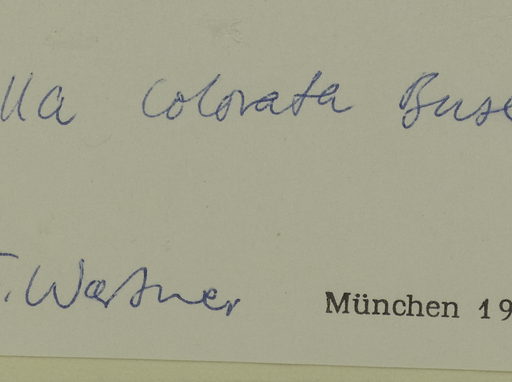 lla colorata Buse
. Wartner
München 19